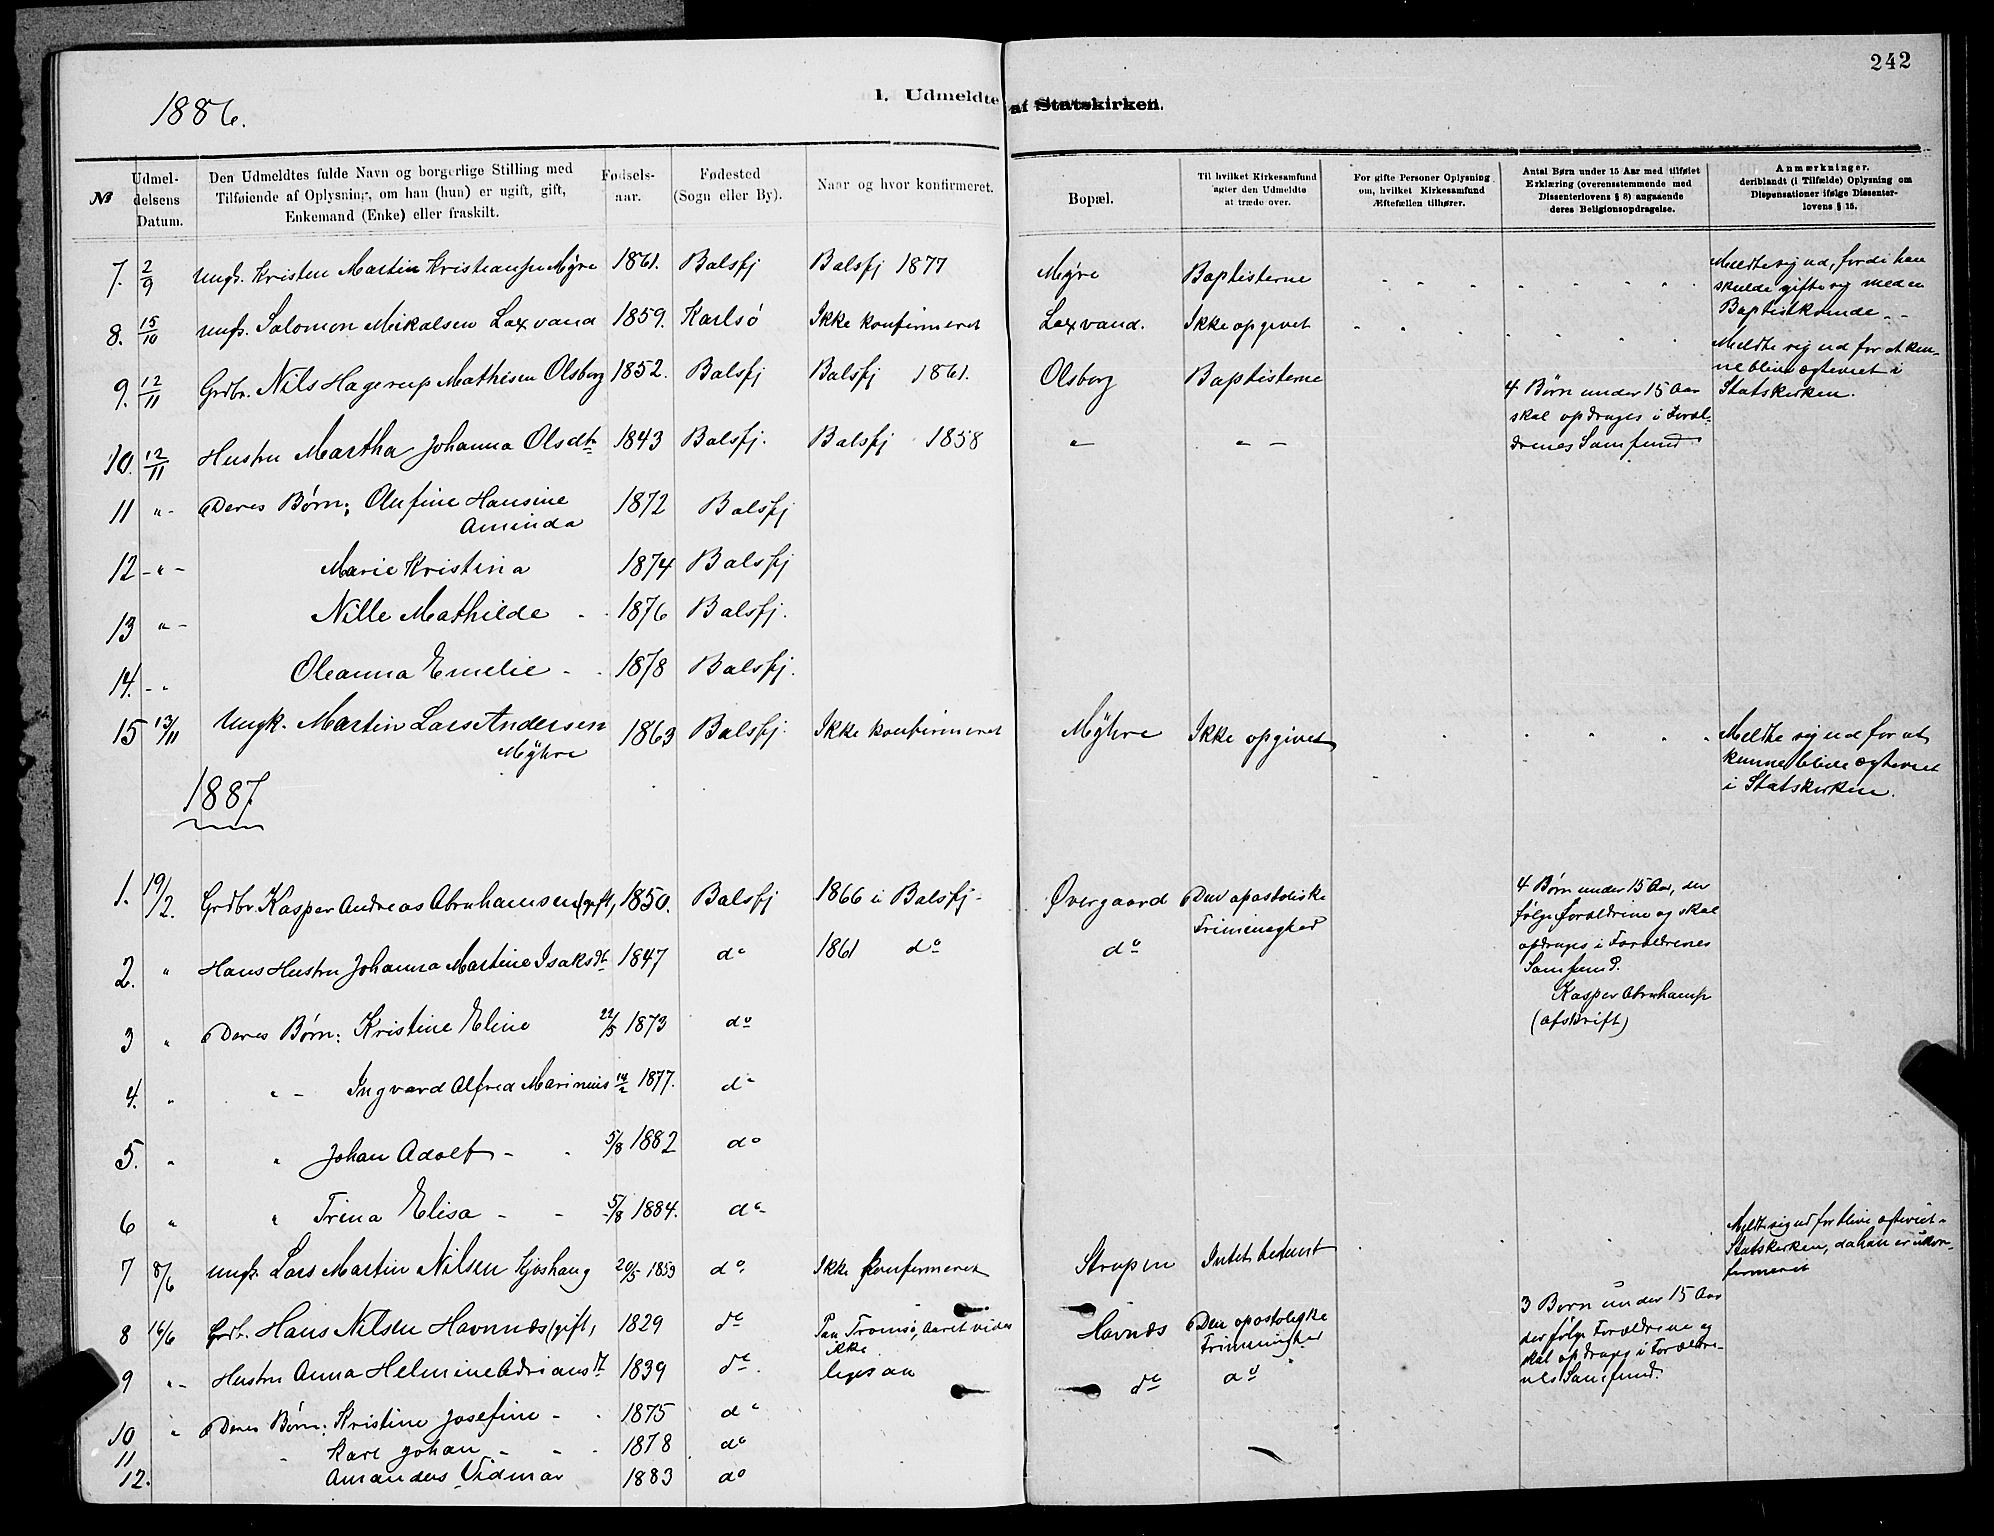 242
1886.
1. Udmeldte af Statskirken.
№
Udmeldelsens Datum.
Den Udmeldtes fulde Navn og borgerlige Stilling med Tilføiende af Oplysning, om han (hun) er ugift, gift, Enkemand (Enke) eller fraskilt.
Fødselsaar.
Fødested (Sogn eller By).
Naar og hvor konfirmeret.
Bopæl.
Til hvilket Kirkesamfund agter den Udmeldte at træde over.
For gifte Personer Oplysning om, hvilket Kirkesamfund Ægtefællen tilhører.
Antal Børn under 15 Aar med tilføiet Erklæring (overensstemmende med Dissenterlovens § 8) angaaende deres Religionsopdragelse.
Anmærkninger. deriblandt (i Tilfælde) Oplysning om Dispensationer ifølge Dissenterlovens § 15.
7. 2/9 Ungk. Kristen Martin Kristiansen Myre 1861. Balsfj Balsfj 1877 Myre Baptisterne Meldte sig ud, fordi han skulde gifte sig med en Baptistkvinde.
8. 15/10 Ungk. Salomon Mikalsen Laxvand 1859. Karlsö Ikke konfirmeret Laxvand. Ikke opgivet
9. 12/11 Grdbr. Nils Hagerup Mathisen Olsborg 1852. Balsfj Balsfj 1861. Olsborg Baptisterne 4 Børn under 15 Aar skal opdrages i Foræl-drenes Samfund Meldte sig ud for at kun-ne blive ægteviet i Statskirken.
10. 12/11 Hustru Martha Johanna Olsdtr 1843 Balsfj. Balsfj 1858 " "
11 " Deres Børn: Olufine Hansine Aminda 1872 Balsfj
12 " Marie Kristina 1874 Balsfj
13 " Nille Mathilde 1876 Balsfj.
14. " Oleanna Emelie 1878 Balsfj.
15 13/11 Ungk. Martin Lars Andersen Myhre 1863 Balsfj. Ikke konfirmeret Myhre Ikke opgivet Meldte sig ud for at kunne blive ægteviet i Statskirken.
1887.
1. 19/2. Grdbr. Kasper Andreas Abrahamsen (gift, 1850. Balsfj 1866 i Balsfj. Øvergaard Den apostoliske Frimenighed 4 Børn under 15 Aar, der følge Forældrene og skal opdrages i Forældrenes Samfund. Kasper Abrahamsen (afskrift)
2. " Hans Hustru Johanna Martine Isaksdt 1847 do 1861 do do
3 " Deres Børn: Kristine Eline 22/5 1873 do
4. " " Ingvard Alfred Marinius 14/2 1877. do
5. " " Johan Adolf 5/8 1882 do
6 " " Trina Elisa 5/8 1884. do
7 8/6 Ungk. Lars Martin Nilsen 20/5 1853 do. Ikke konfirmeret Strupen Intet bestemt Meldte sig ud for blive ægteviet i Statskirken, da han er ukon-firmeret
8 16/6 Grdbr. Hans Nilsen Havnnæs (gift, 1829 do Paa Tromsø, Aaret vides ikke Havnæs Den apostoliske Frimenighed 3 Børn under 15 Aar der følge Forældrene og skal opdrages i Foræld-re-nes Samfund.
9 " Hustru Anna Helmine Adriansdt 1839 do. ligesaa do do
10 " Deres Børn: Kristine Josefine 1875 do
11 " Karl Johan 1878 do
12. Amandus Vidmar 1883 do